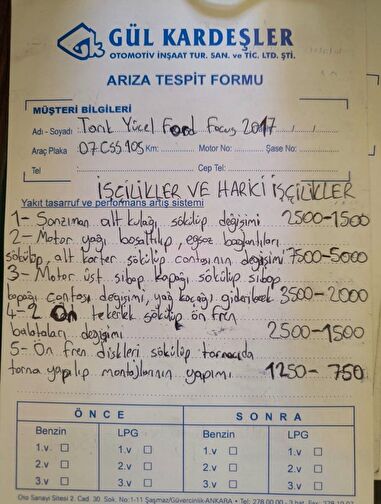 GÜL KARDEŞLER
OTOMOTİV İNŞAAT TUR. SAN. ve TİC. LTD. ŞTİ.
ARIZA TESPİT FORMU
MÜŞTERİ BİLGİLERİ
Adı - Soyadı : Tarık Yücel Ford Focus 2017
Araç Plaka 07 CSS 105 Km: Motor No: Şase No:
Tel Cep Tel:
İŞÇİLİKLER VE HARİCİ İŞÇİLİKLER
Yakıt tasarruf ve performans artış sistemi
1- Şanzıman alt kulağı sökülüp değişimi 2500-1500
2- Motor yağı boşaltılıp, egsoz bağlantıları
sökülüp, alt karter sökülüp contasının değişimi 7500-5000
3- Motor üst sibop kapağı sökülüp sibop
kapağı contası değişimi, yağ kaçağı giderilecek 3500-2000
4- 2 ön tekerlek sökülüp ön fren
balataları değişimi 2500-1500
5- Ön fren diskleri sökülüp tornacıda
torna yapılıp montajlarının yapımı 1250-750
ÖNCE SONRA
Benzin LPG Benzin LPG
1.v 1.v 1.v 1.v
2.v 2.v 2.v 2.v
3.v 3.v 3.v 3.v
Oto Sanayi Sitesi 2. Cad. 30. Sok. No:1-11 Şaşmaz/Güvercinlik-ANKARA • Tel: 278 00 00 - 3 hat